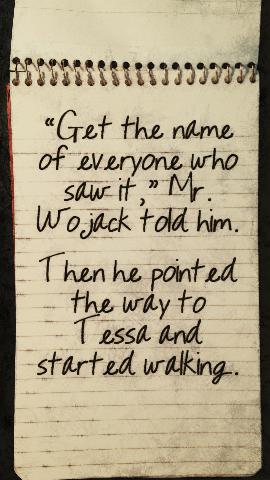 “Get the name
of everyone who
saw it,” Mr.
Wojack told him.
Then he pointed
the way to
Tessa and
started walking.